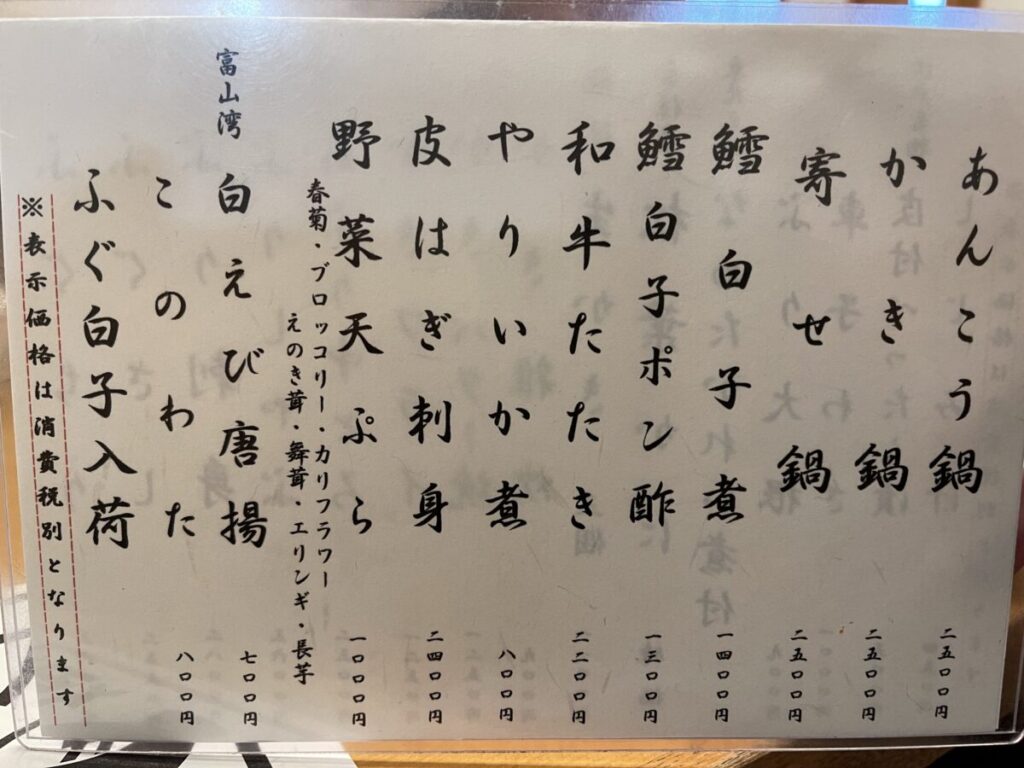 あんこう鍋 二五〇〇円
かき鍋 二五〇〇円
寄せ鍋 二五〇〇円
鱈白子煮 一四〇〇円
鱈白子ポン酢 一三〇〇円
和牛たたき 二二〇〇円
やりいか煮 八〇〇円
皮はぎ刺身 二四〇〇円
野菜天ぷら 一〇〇〇円
春菊・ブロッコリー・カリフラワー
えのき茸・舞茸・エリンギ・長芋
富山湾 白えび唐揚 七〇〇円
このわた 八〇〇円
ふぐ白子入荷
※表示価格は消費税別となります